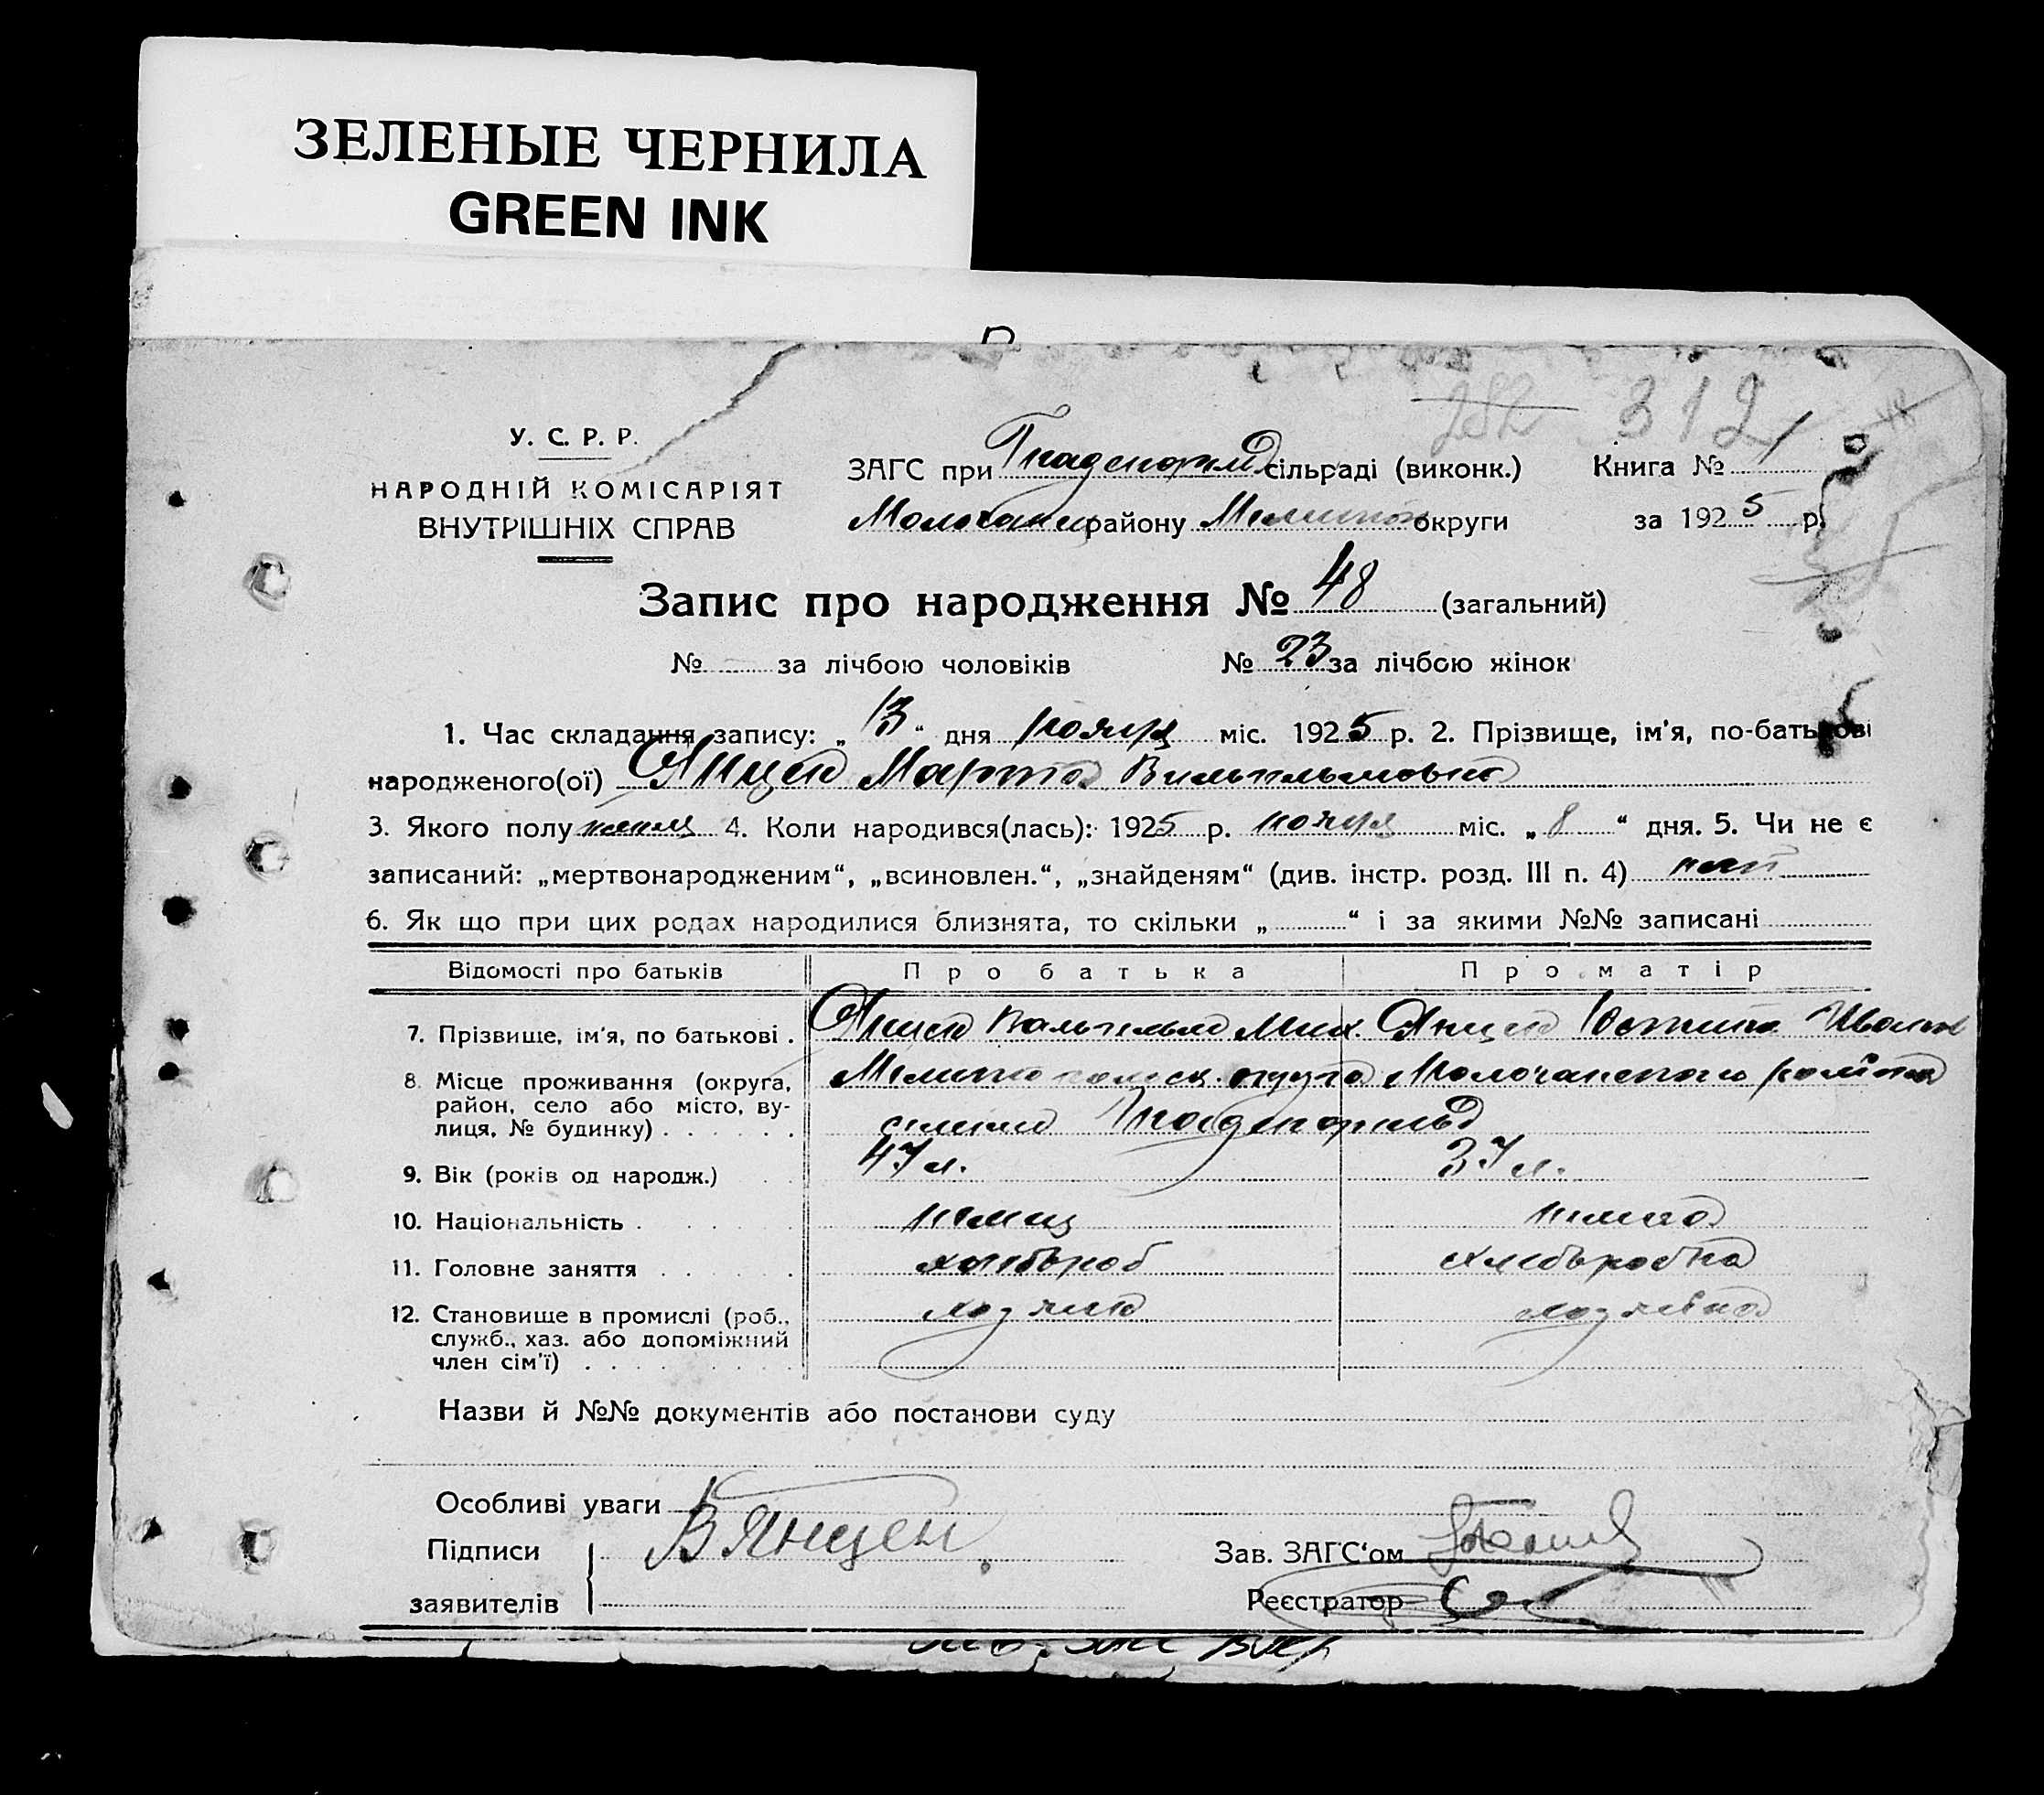 ЗЕЛЕНЫЕ ЧЕРНИЛА
GREEN INK
282 312
У. С. Р. Р.
НАРОДНІЙ КОМІСАРІЯТ
ВНУТРІШНІХ СПРАВ
ЗАГС при Гнаденфельд сільраді (виконк.) Книга № 1
Молочанск району Мелитоп округи за 1925 р.
Запис про народження № 48 (загальний)
№ за лічбою чоловіків № 23 за лічбою жінок
1. Час складання запису: „ 13 “ дня ноября міс. 1925 р. 2. Прізвище, ім'я, по-батькові
народженого(ої) Янцен Марта Вильгельмовна
3. Якого полу 4. Коли народився(лась): 1925 р. ноября міс. „ 8 “ дня. 5. Чи не є
записаний: „мертвонародженим“, „всиновлен.“, „знайденям“ (див. інстр. розд. III п. 4) нет
6. Як що при цих родах народилися близнята, то скільки „ “ і за якими №№ записані
Відомості про батьків Про батька Про матір
7. Прізвище, ім'я, по батькові . Янцен Вильгельм Янцен
8. Місце проживання (округа, Мелитопольск. округа Молочанского района
район, село або місто, ву-
лиця, № будинку) . . . . . . селение Гнаденфельд
9. Вік (років од народж.) . . 47 л. 37 л.
10. Національність . . . . . . немец немка
11. Головне заняття . . . . . . хлебороб хлеборобка
12. Становище в промислі (роб., хозяин хозяйка
служб., хаз. або допоміжний
член сім'ї) . . . . . . . . .
Назви й №№ документів або постанови суду
Особливі уваги
Підписи В Янцен. Зав. ЗАГС'ом
заявителів Реєстратор